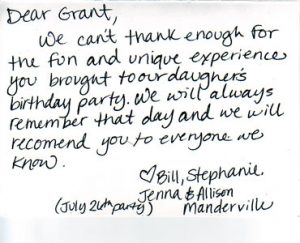 Dear Grant,
We can't thank enough for
the fun and unique experience
you brought to our daugher's
birthday party. We will always
remember that day and we will
recomend you to everyone we
know.
♡Bill, Stephanie,
Jenna & Allison
(July 26th party) Manderville